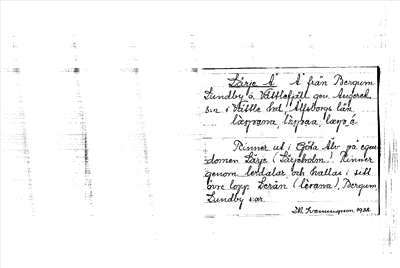 Lärje Å Å från Bergum
Lundby o. Vättlefjäll gm. Angered
s:n i Vättle hd. Älfsborgs län.
Rinner ut i Göta Älv på egen
domen Lärje (Lärjeholm). Rinner
genom lerdalar och kallas i sitt
övre lopp Lerån (lerana), Bergum
Lundby
1938.